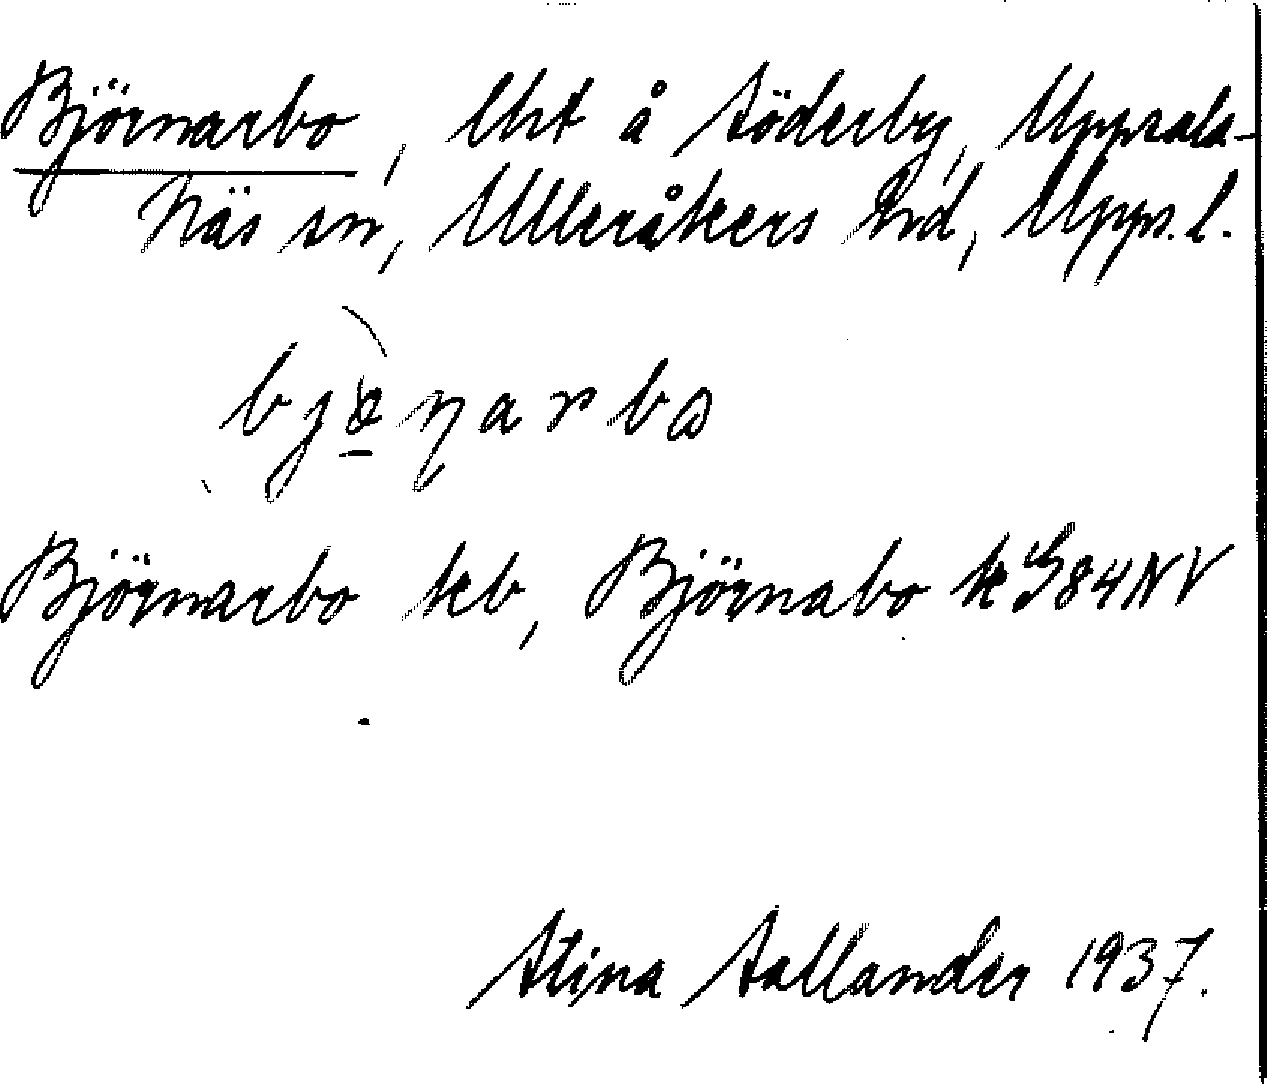 Björnarbo, lht å Söderby, Uppsala-
Näs sn, Ulleråkers hd, Upps. l.
bjɵ̱ɳarbɷ
Björnarbo kb, Björnabo k S84NV
Stina Sallander 1937.